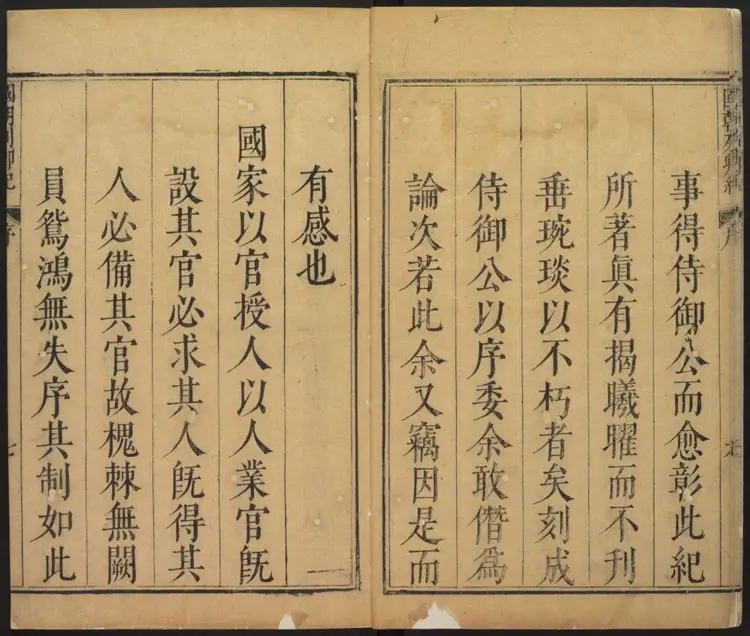 事得侍御公而愈彰此紀
所著眞有揭曦曜而不刊
垂琬琰以不朽者矣刻成
侍御公以序委余敢僭爲
論次若此余又竊因是而
有感也
國家以官授人以人業官旣
設其官必求其人旣得其
人必備其官故槐棘無闕
員鴛鴻無失序其制如此